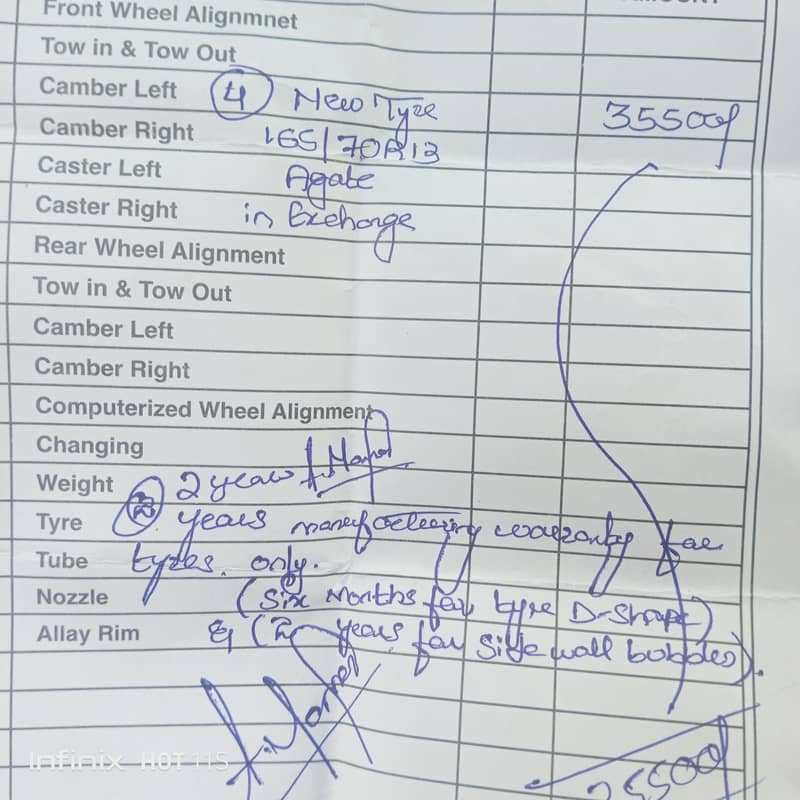 Front Wheel Alignmnet
Tow in & Tow Out
Camber Left ④ New Tyre 35500/
Camber Right 165/70R13
Caster Left Agate
Caster Right in Exchange
Rear Wheel Alignment
Tow in & Tow Out
Camber Left
Camber Right
Computerized Wheel Alignment
Changing
Weight 2 years
Tyre 2 years manufacturing warranty for
Tube tyres only.
Nozzle (Six Months for tyre D-Shape)
Allay Rim & (2 years for Side wall bubbles).
Infinix HOT 11S
35500/